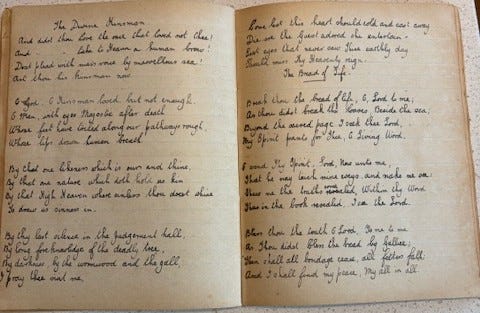 The Divine Kinsman
And didst thou love the race that loved not Thee?
And take to Heaven a human brow?
Dost plead with man's voice by marvellous sea?
Art thou his Kinsman now
O God, O Kinsman loved, but not enough,
O Man, with eyes Majestic after death
Whose feet have toiled along our pathways rough,
Whose lips drawn human breath
By that one likeness which is ours and thine,
By that one nature which doth hold us kin
By that High Heaven where sinless thou dost shine
To draw us sinners in.
By thy last silence in the judgement hall,
By long foreknowledge of the deadly tree,
By darkness, by the wormwood and the gall,
I pray thee visit me,
Come lest this heart should cold and cast away
Die ere the Guest adored she entertain
Lest eyes that never saw Thine earthly day
Should miss Thy Heavenly reign.
The Bread of Life.
Break thou the bread of life, O, Lord to me;
As thou didst break the loaves Beside the sea;
Beyond the sacred page I seek thee Lord,
My Spirit pants for Thee, O Living Word.
O send Thy Spirit, Lord, Now unto me,
That he may touch mine eyes, and make me see
Show me the truth revealed, Within thy Word
Thus in the book revealed, I see the Lord.
Bless thou the truth O Lord, To me to me
As Thou didst bless the bread by Galilee;
Then shall all bondage cease, all fetters fall;
And I shall find my peace, My all in all